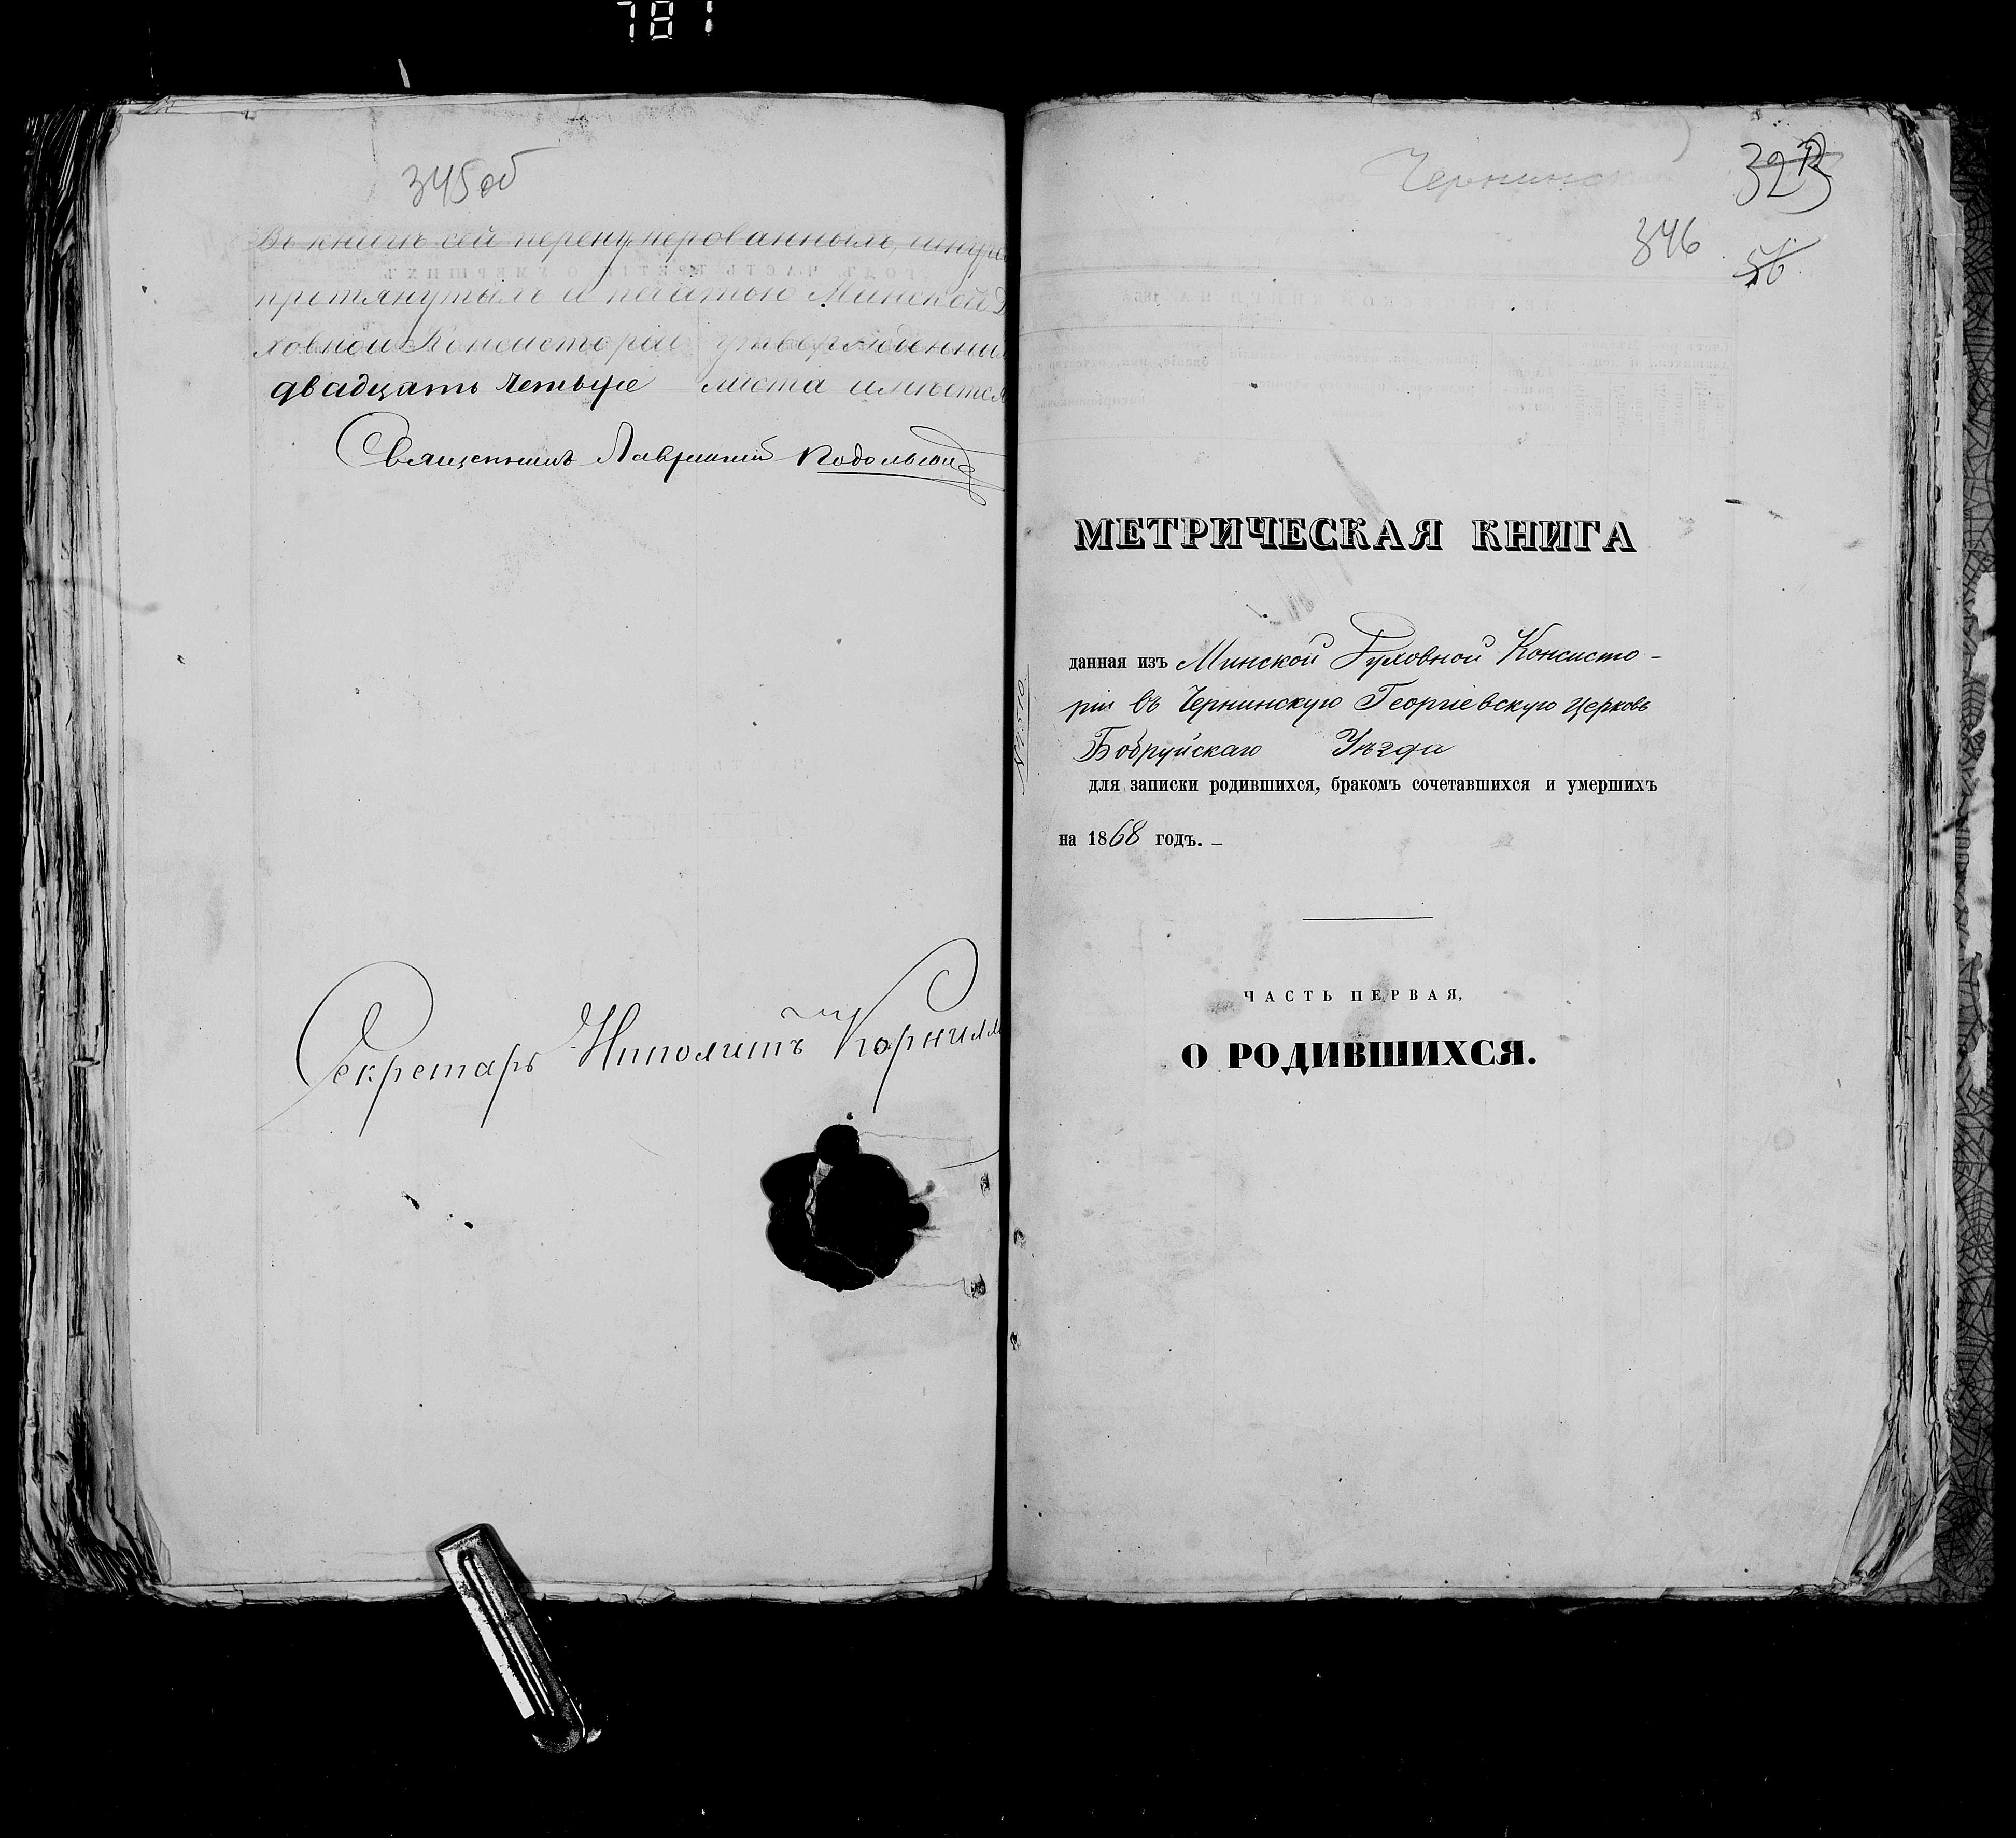 781
345об
Въ книгѣ сей перенумерованныхъ, шнуро
протянутыхъ и печатью Минской Д
ховной Консисторіи утвержденных
двадцать четыре листа имѣется
Священникъ Лаврентій
Секретарь Иполитъ Корнил
Чернинск
323
346
56
МЕТРИЧЕСКАЯ КНИГА
данная изъ Минской Духовной Консисто-
ріи въ Чернинскую Георгіевскую церковь
Бобруйскаго Уѣзда
для записки родившихся, бракомъ сочетавшихся и умершихъ
на 1868 годъ. –
ЧАСТЬ ПЕРВАЯ,
О РОДИВШИХСЯ.